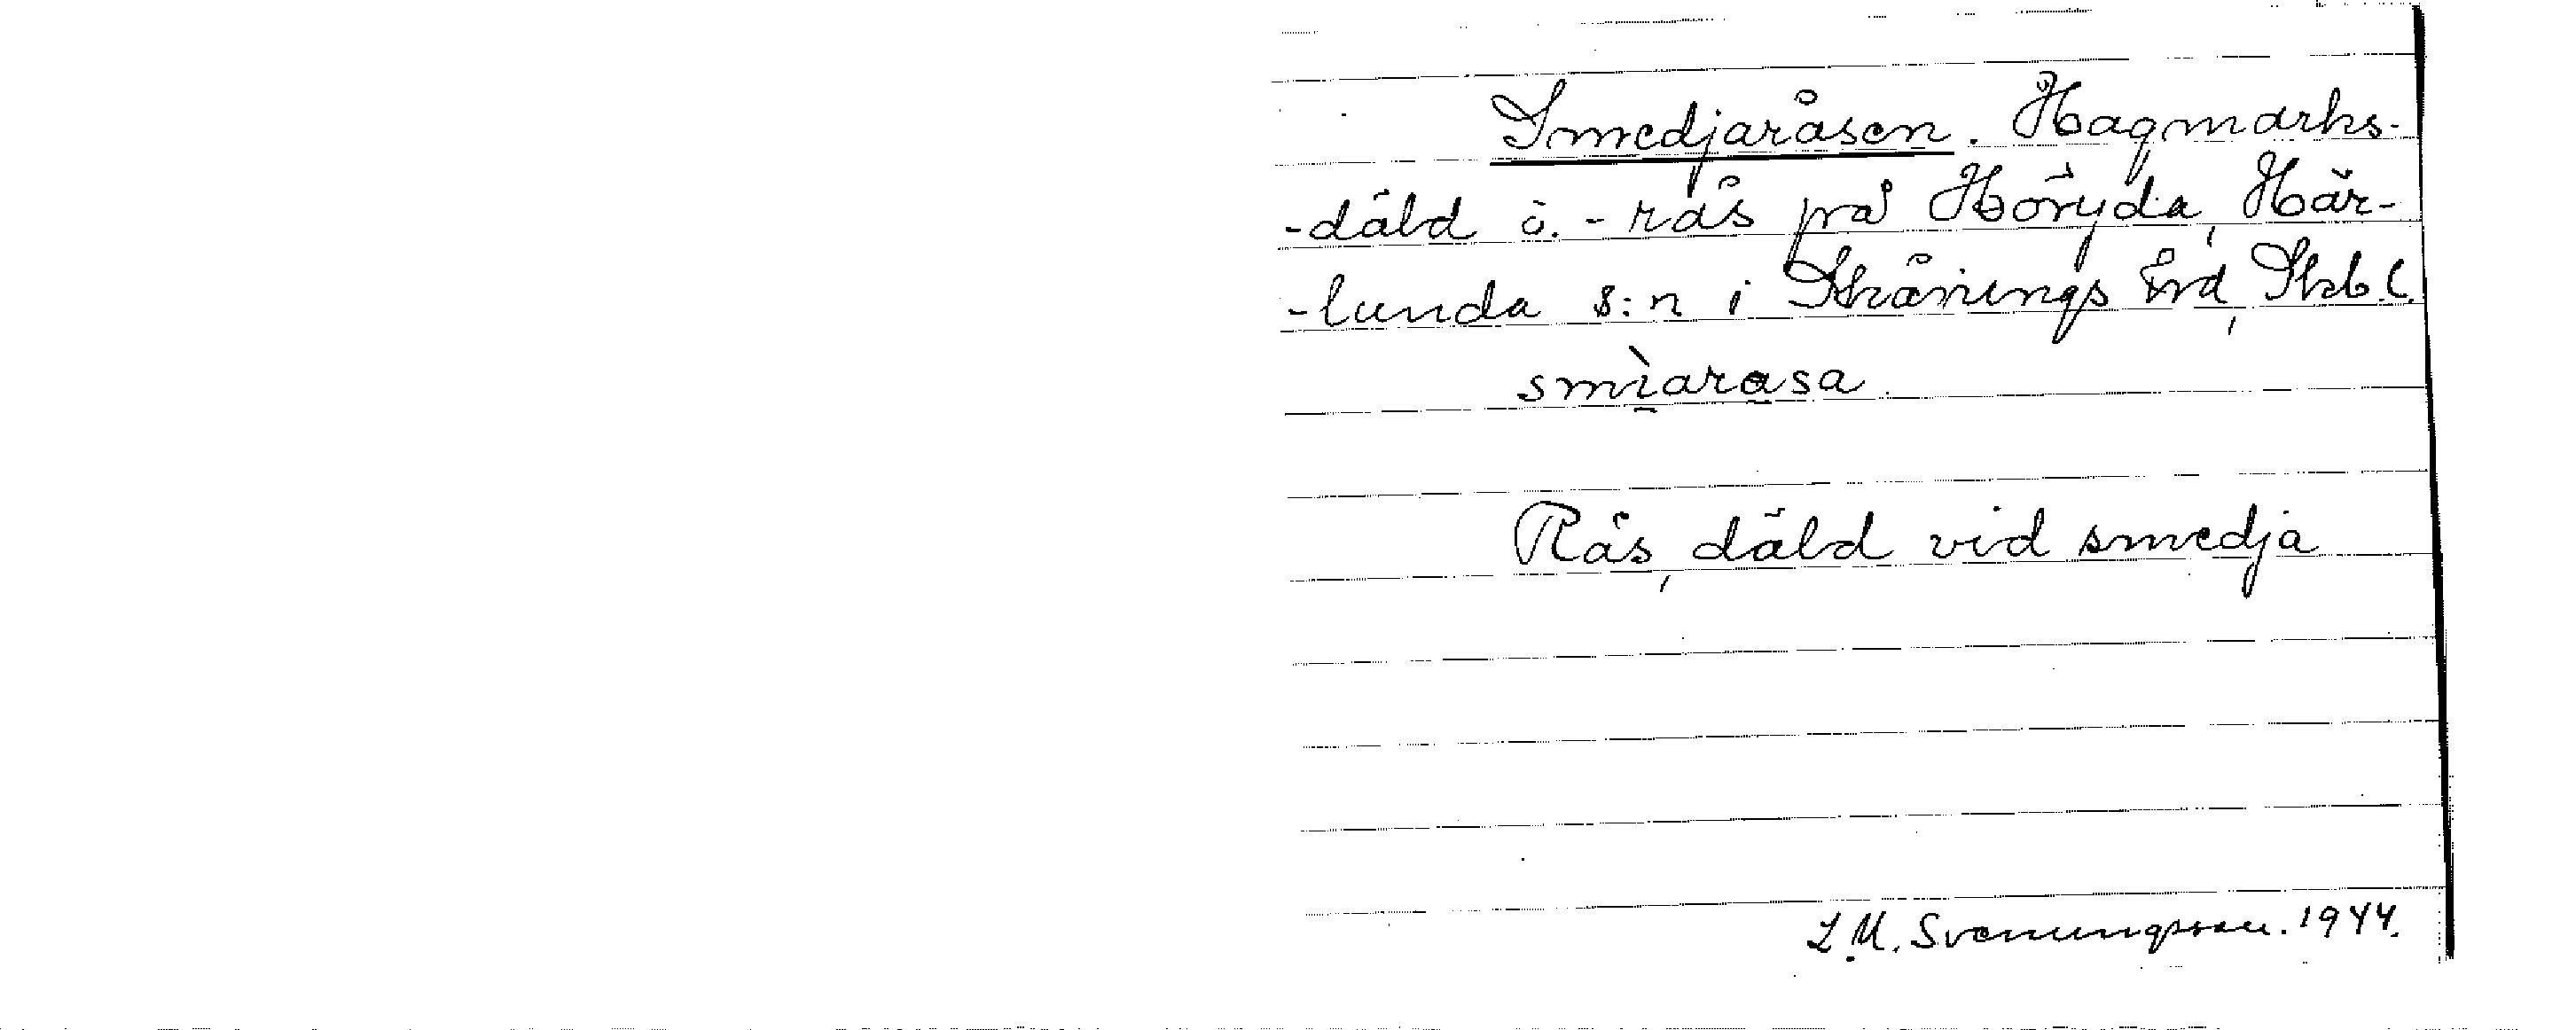 Smedjaråsen. Hagmarks-
-däld o. -rås på Höryda, Här-
-lunda s:n i Skånings hrd, Skbl.
smìarasa.
Rås, däld vid smedja
L. M. Svenungsson. 1944.